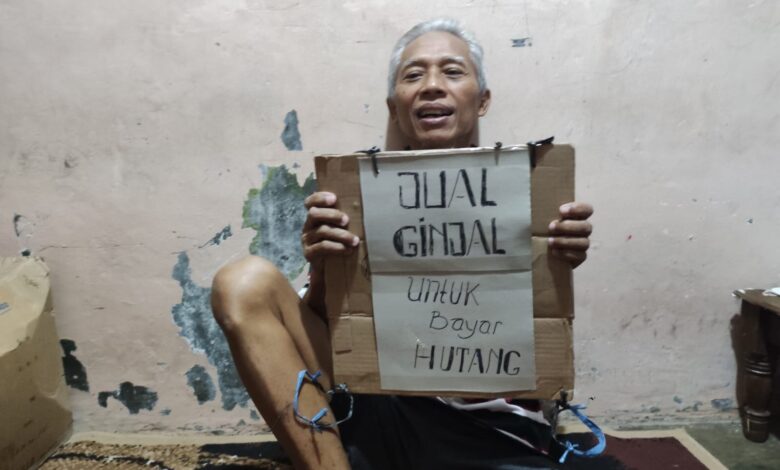 JUAL
GINJAL
Untuk
Bayar
HUTANG